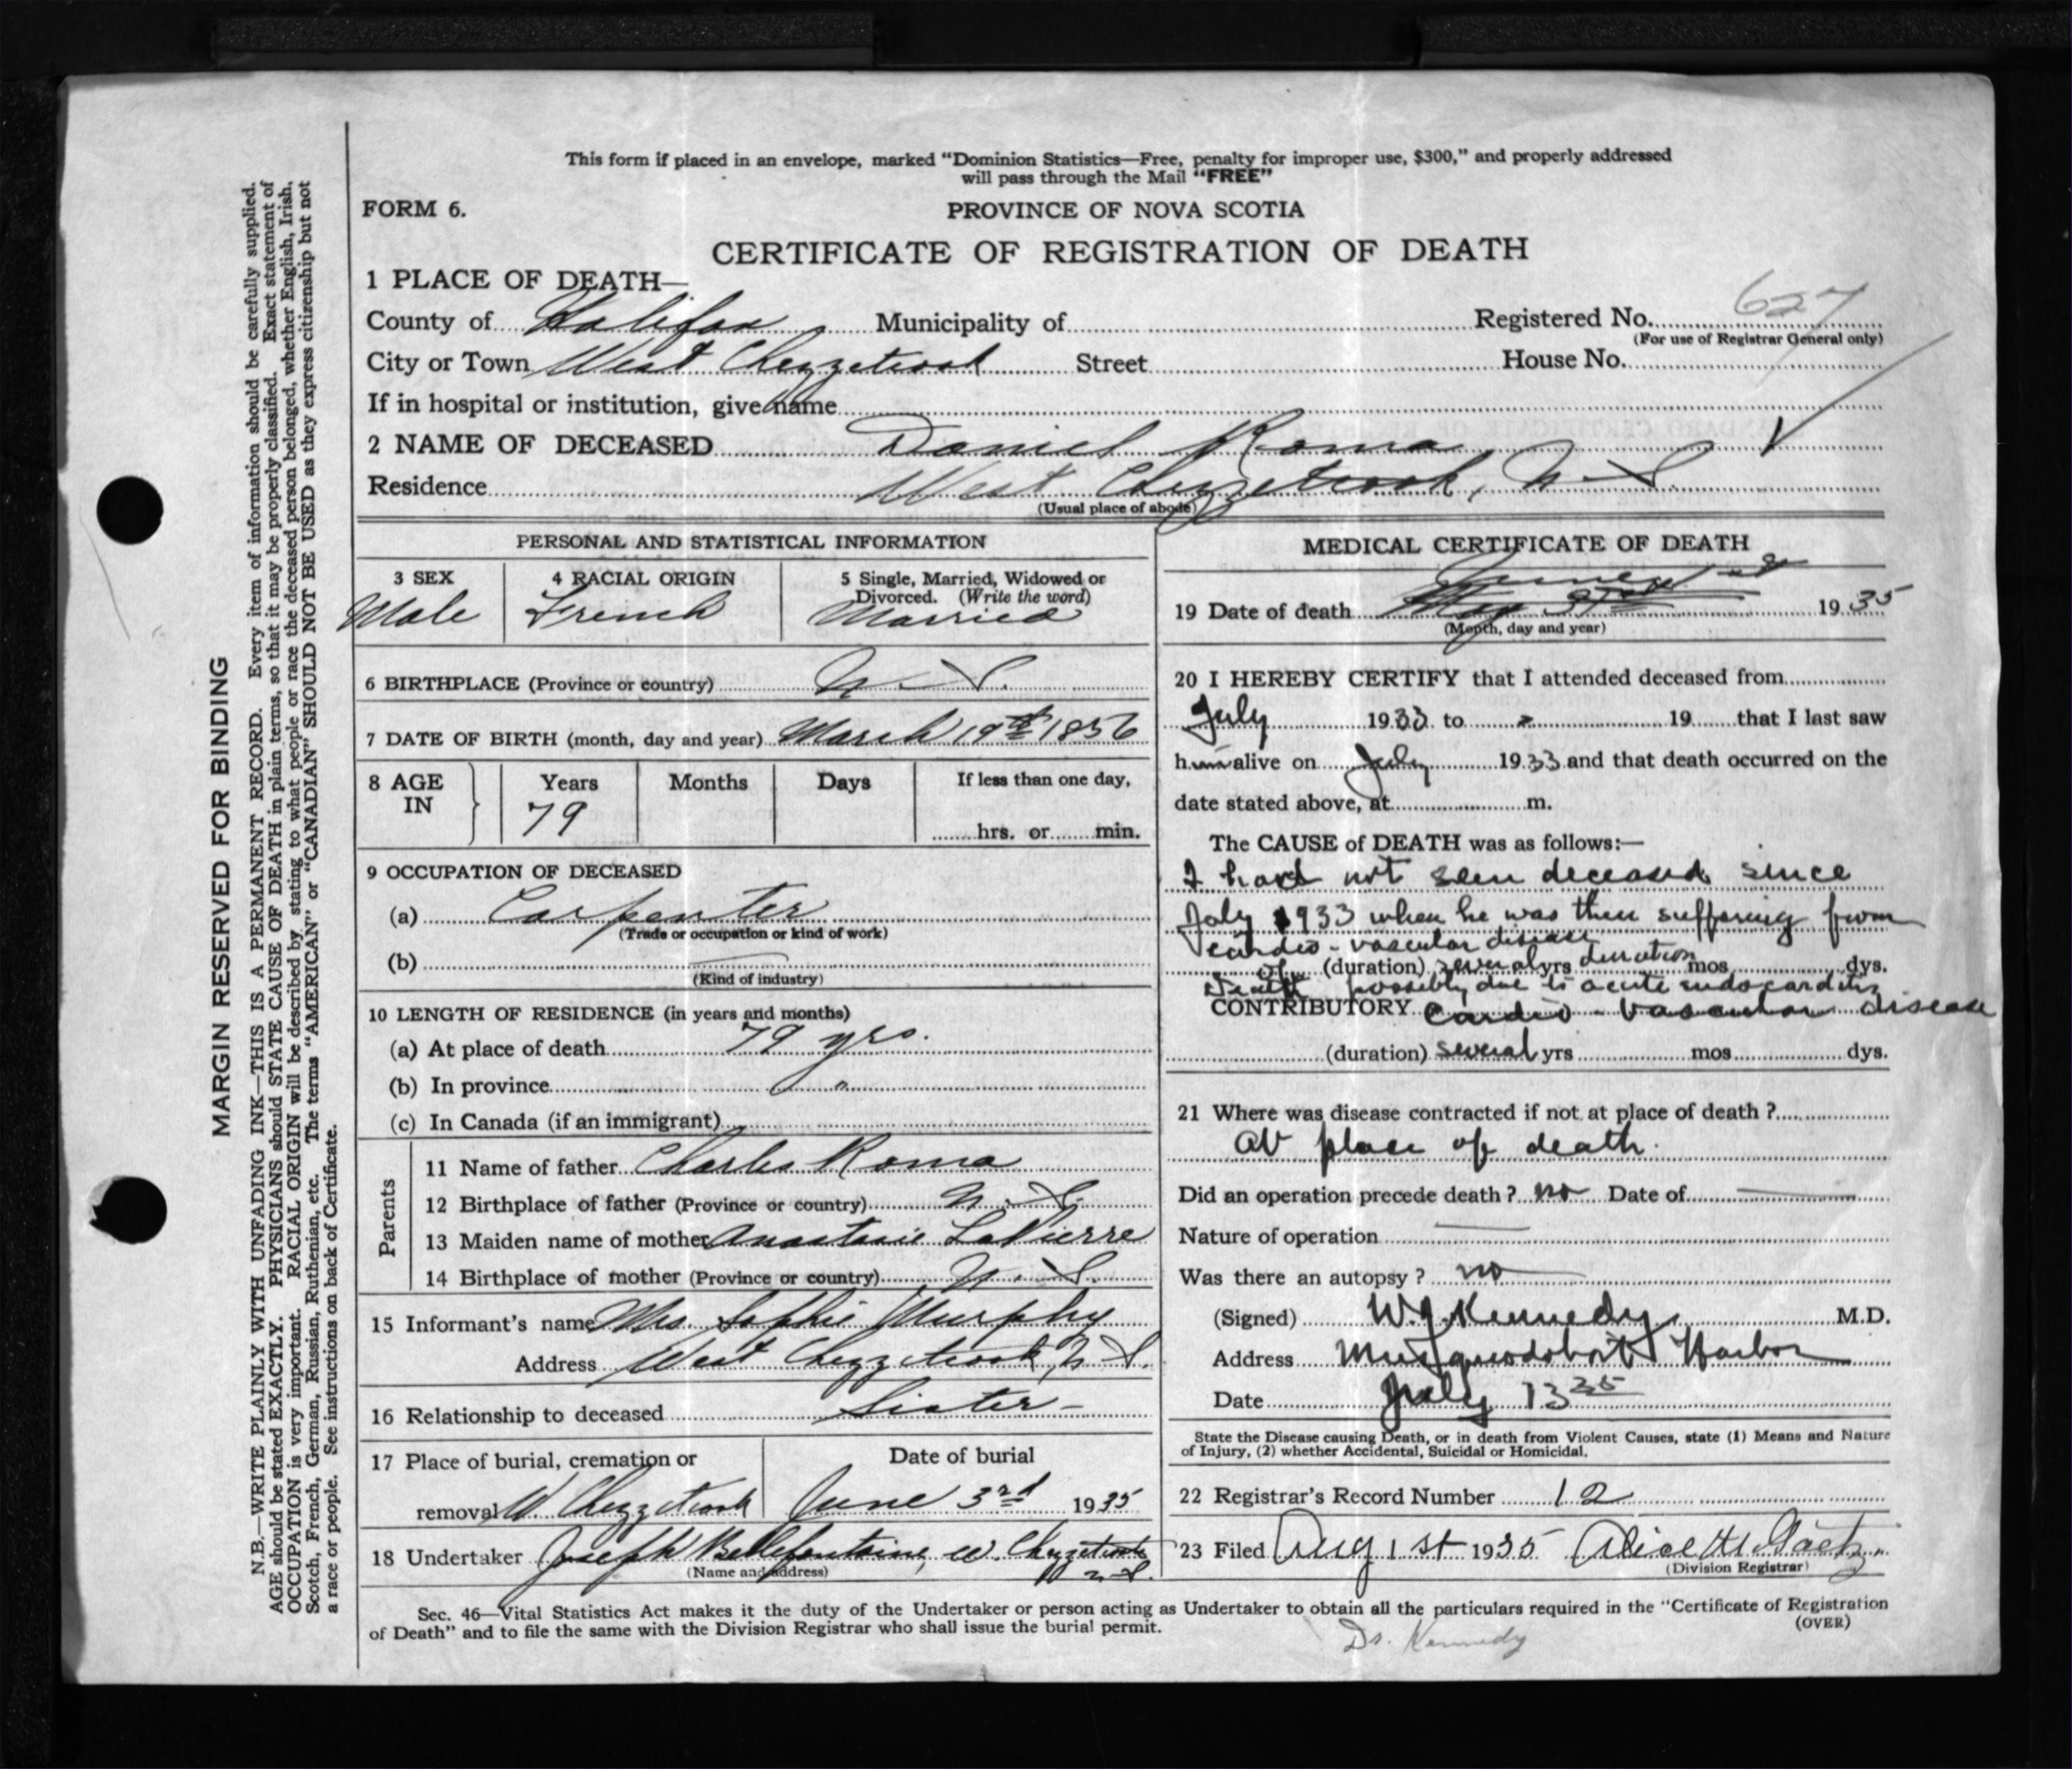 This form if placed in an envelope, marked "Dominion Statistics—Free, penalty for improper use, $300," and properly addressed
will pass through the Mail "FREE"
FORM 6.
PROVINCE OF NOVA SCOTIA
CERTIFICATE OF REGISTRATION OF DEATH
1 PLACE OF DEATH—
County of Halifax Municipality of Registered No. 627
(For use of Registrar General only)
City or Town West Chezzetcook Street House No.
If in hospital or institution, give name
2 NAME OF DECEASED Daniel Roma
Residence West Chezzetcook, N.S.
(Usual place of abode)
PERSONAL AND STATISTICAL INFORMATION
3 SEX 4 RACIAL ORIGIN 5 Single, Married, Widowed or
Divorced. (Write the word)
Male French Married
6 BIRTHPLACE (Province or country) N.S.
7 DATE OF BIRTH (month, day and year) March 19th 1856
8 AGE IN Years Months Days If less than one day,
79 hrs. or min.
9 OCCUPATION OF DECEASED
(a) Carpenter
(Trade or occupation or kind of work)
(b)
(Kind of industry)
10 LENGTH OF RESIDENCE (in years and months)
(a) At place of death 79 yrs.
(b) In province "
(c) In Canada (if an immigrant)
Parents
11 Name of father Charles Roma
12 Birthplace of father (Province or country) N.S.
13 Maiden name of mother Anastasie LaPierre
14 Birthplace of mother (Province or country) N.S.
15 Informant's name Mrs. Sophie Murphy
Address West Chezzetcook, N.S.
16 Relationship to deceased Sister -
17 Place of burial, cremation or Date of burial
removal W. Chezzetcook June 3rd 1935
18 Undertaker Joseph Bellefontaine, W. Chezzetcook
N.S.
(Name and address)
MEDICAL CERTIFICATE OF DEATH
June
19 Date of death May 1935
(Month, day and year)
20 I HEREBY CERTIFY that I attended deceased from
July 1933 to 19 that I last saw
him alive on July 1933 and that death occurred on the
date stated above, at m.
The CAUSE of DEATH was as follows:—
I had not seen deceased since
July 1933 when he was then suffering from
cardio-vascular disease
of (duration) several yrs duration mos dys.
Death possibly due to acute endocarditis
CONTRIBUTORY Cardio-Vascular disease
(duration) several yrs mos dys.
21 Where was disease contracted if not at place of death?
at place of death.
Did an operation precede death? no Date of
Nature of operation
Was there an autopsy? no
(Signed) W.J. Kennedy M.D.
Address Musquodoboit Harbor
Date July 13 35
State the Disease causing Death, or in death from Violent Causes, state (1) Means and Nature
of Injury, (2) whether Accidental, Suicidal or Homicidal.
22 Registrar's Record Number 12
23 Filed Aug 1st 1935 Alice H. Gaetz
(Division Registrar)
Sec. 46—Vital Statistics Act makes it the duty of the Undertaker or person acting as Undertaker to obtain all the particulars required in the "Certificate of Registration
of Death" and to file the same with the Division Registrar who shall issue the burial permit.
(OVER)
Dr. Kennedy
MARGIN RESERVED FOR BINDING
N.B.—WRITE PLAINLY WITH UNFADING INK—THIS IS A PERMANENT RECORD. Every item of information should be carefully supplied.
AGE should be stated EXACTLY. PHYSICIANS should STATE CAUSE OF DEATH in plain terms, so that it may be properly classified. Exact statement of
OCCUPATION is very important. RACIAL ORIGIN will be described by stating to what people or race the deceased person belonged, whether English, Irish,
Scotch, French, German, Russian, Ruthenian, etc. The terms "AMERICAN" or "CANADIAN" SHOULD NOT BE USED as they express citizenship but not
a race or people. See instructions on back of Certificate.